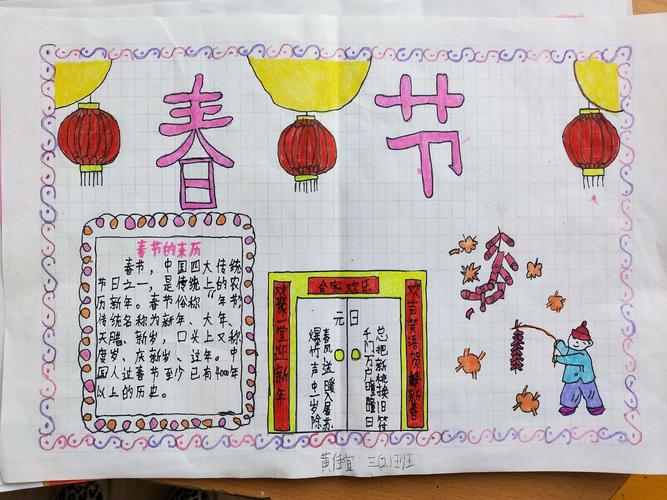 春节
春节的来历
春节，中国四大传统
节日之一，是传统上的农
历新年。春节俗称“年节”
传统名称为新年、大年、
天腊、新岁，口头上又称
度岁、庆新岁、过年。中
国人过春节至少已有400年
以上的历史。
合家欢乐
欢聚一堂迎新年
欢声笑语贺新春
元日
爆竹声中一岁除
春风送暖入屠苏
千门万户曈曈日
总把新桃换旧符
黄佳宜 三(2)班